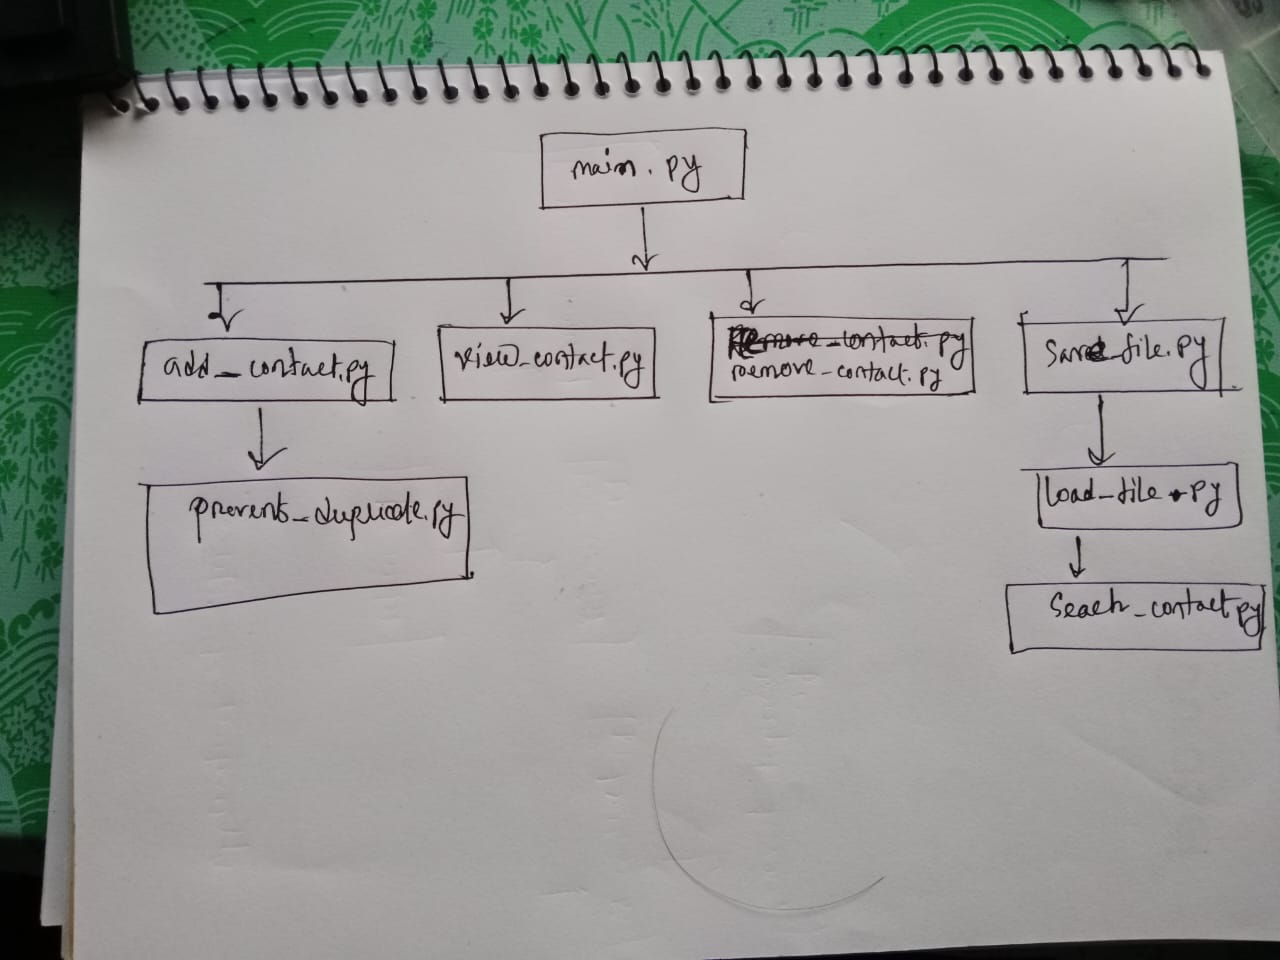 main.py
add_contact.py
view_contact.py
Remove_contact.py
remove_contact.py
save_file.py
prevent_duplicate.py
load_file.py
Seach_contact.py